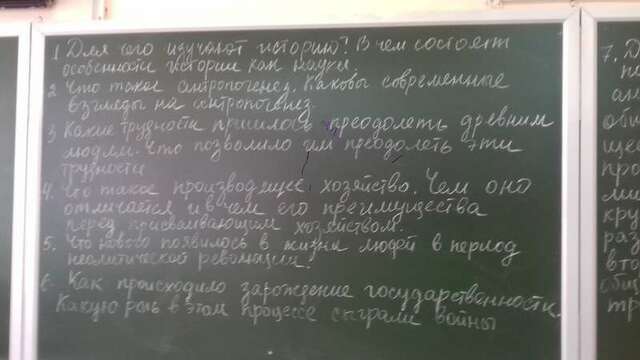 1. Для чего изучают историю? В чем состоят
особенности истории как науки.
2. Что такое антропогенез. Каковы современные
взгляды на антропогенез.
3 Какие трудности пришлось преодолеть древним
людям. Что позволило им преодолеть эти
трудности
4. Что такое производящее хозяйство. Чем оно
отличается и в чем его преимущества
перед присваивающим хозяйством.
5. Что нового появилось в жизни людей в период
неолитической революции.
6. Как происходило зарождение государственности.
Какую роль в этом процессе сыграли войны
7.